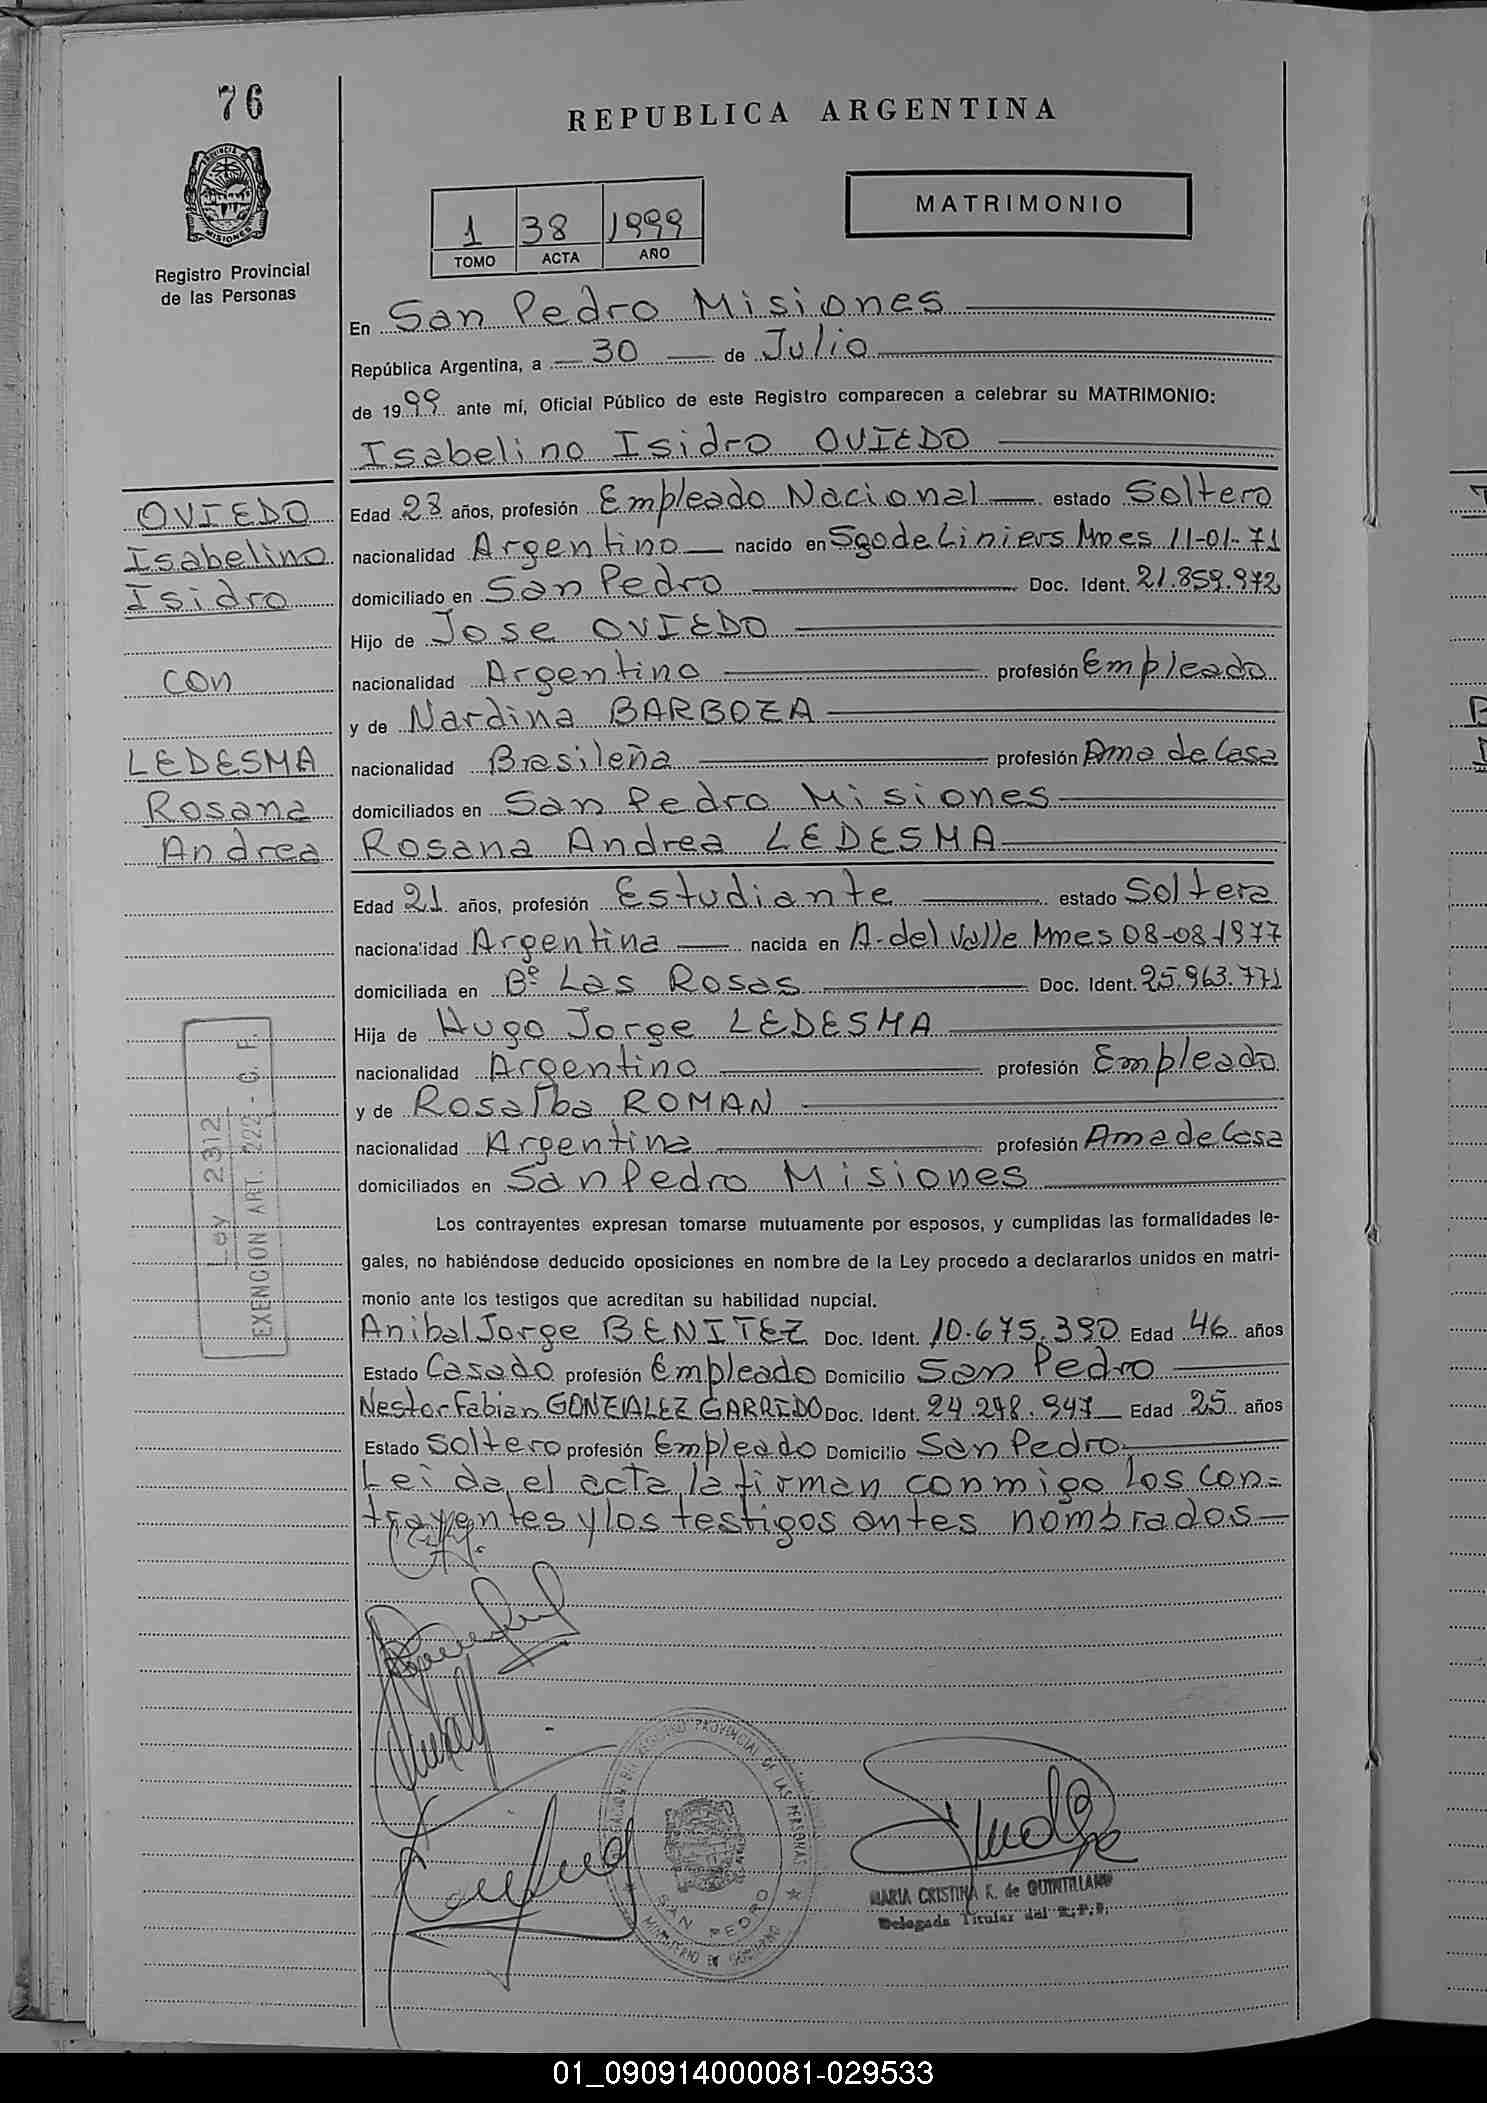 76
REPUBLICA ARGENTINA
PROVINCIA DE
MISIONES
Registro Provincial
de las Personas
1 38 1999
TOMO ACTA AÑO
MATRIMONIO
En San Pedro Misiones
República Argentina, a 30 de Julio
de 1999 ante mí, Oficial Público de este Registro comparecen a celebrar su MATRIMONIO:
Isabelino Isidro OVIEDO
OVIEDO
Isabelino
Isidro
con
LEDESMA
Rosana
Andrea
Edad 28 años, profesión Empleado Nacional estado Soltero
nacionalidad Argentino nacido en Sgo de Liniers Mnes 11-01-71
domiciliado en San Pedro Doc. Ident. 21.859.972
Hijo de Jose OVIEDO
nacionalidad Argentino profesión Empleado
y de Nardina BARBOZA
nacionalidad Brasileña profesión Ama de Casa
domiciliados en San Pedro Misiones
Rosana Andrea LEDESMA
Edad 21 años, profesión Estudiante estado Soltera
nacionalidad Argentina nacida en A. del Valle Mnes 08-08-1977
domiciliada en Bº Las Rosas Doc. Ident. 25.963.771
Hija de Hugo Jorge LEDESMA
nacionalidad Argentino profesión Empleado
y de Rosalba ROMAN
nacionalidad Argentina profesión Ama de Casa
domiciliados en San Pedro Misiones
Ley 2312
EXENCION ART. 222 - C. F.
Los contrayentes expresan tomarse mutuamente por esposos, y cumplidas las formalidades le-
gales, no habiéndose deducido oposiciones en nombre de la Ley procedo a declararlos unidos en matri-
monio ante los testigos que acreditan su habilidad nupcial.
Anibal Jorge BENITEZ Doc. Ident. 10.675.390 Edad 46 años
Estado Casado profesión Empleado Domicilio San Pedro
Nestor Fabian GONZALEZ GARRIDO Doc. Ident. 24.298.947 Edad 25 años
Estado Soltero profesión Empleado Domicilio San Pedro
Leida el acta la firman conmigo los con=
trayentes y los testigos antes nombrados
REGISTRO PROVINCIAL DE LAS PERSONAS
SAN PEDRO
MINISTERIO DE GOBIERNO
MARIA CRISTINA K. de QUINTILLANO
Delegada Titular del R.P.P.
01_090914000081-029533